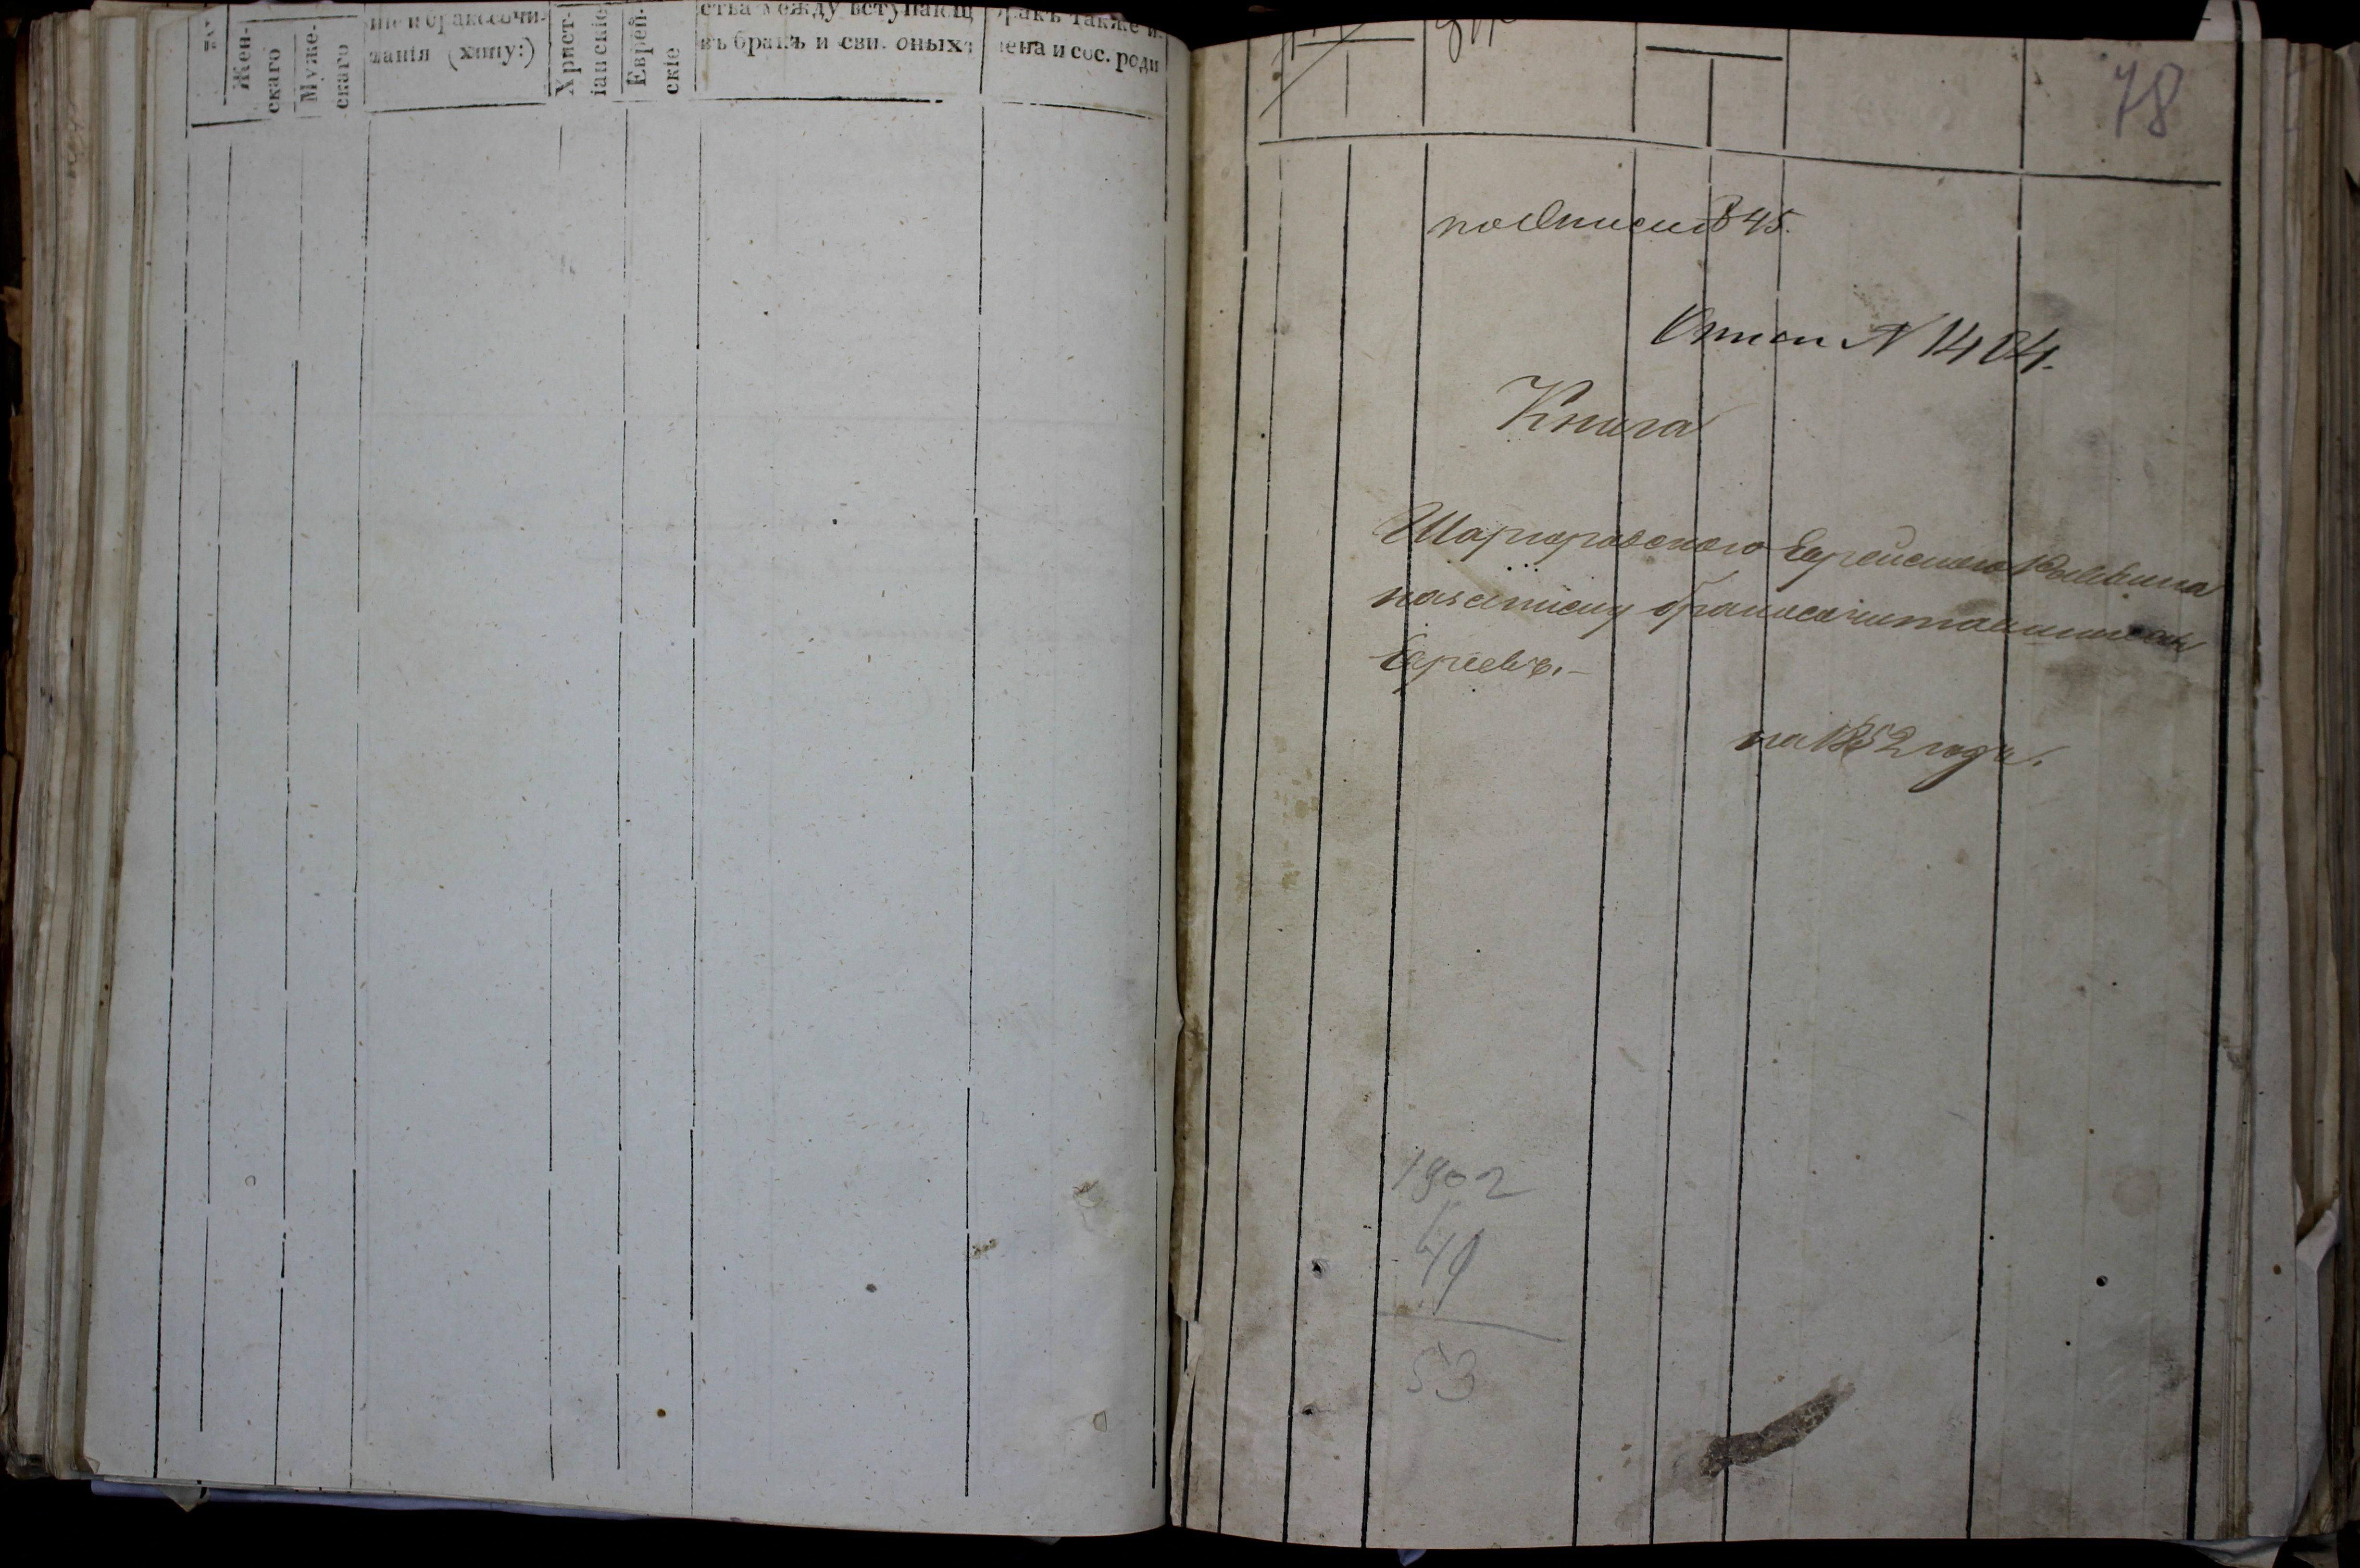 Жен-
скаго
Муже-
скаго
занія (хипу:)
Христ-
іанскіе
Еврей-
скіе
ства между вступающ
въ бракъ и сви. оныхъ
ракъ также и
мена и сос. роди
78
по Описи № 45.
Описи № 1404.
Книга
Шаргородского Еврейского
на записку бракосочитавшихся
Евреевъ.
на 1852 годъ.
1902
49
53